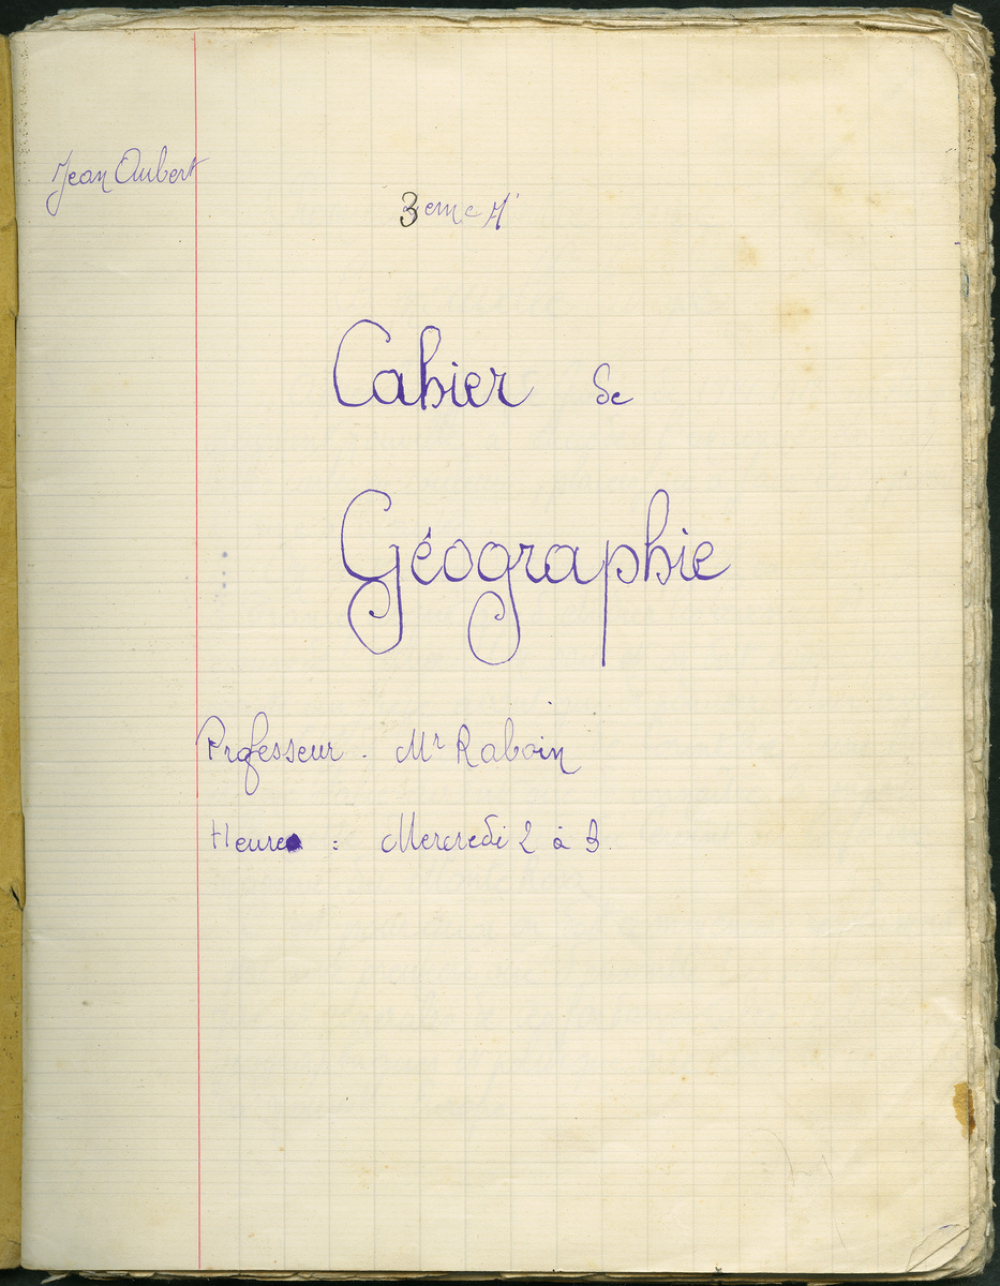 Jean Aubert
3eme A'
Cahier de
Géographie
Professeur . Mr Raboin
Heures : Mercredi 2 à 3.